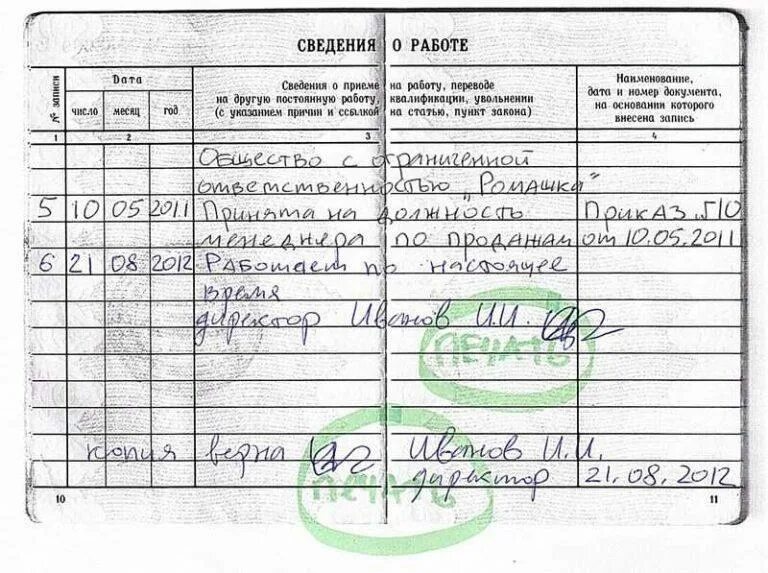 СВЕДЕНИЯ О РАБОТЕ
№ записи
Дата
число
месяц
год
Сведения о приеме на работу, переводе
на другую постоянную работу, квалификации, увольнении
(с указанием причин и ссылкой на статью, пункт закона)
Наименование,
дата и номер документа,
на основании которого
внесена запись
1 2 3 4
Общество с ограниченной
ответственностью „Ромашка"
5 10 05 2011 Принята на должность Приказ №10
менеджера по продажам от 10.05.2011
6 21 08 2012 Работает по настоящее
время
директор Иванов И.И.
ПЕЧАТЬ
копия верна Иванов И.И.
директор 21.08.2012
ПЕЧАТЬ
10 11